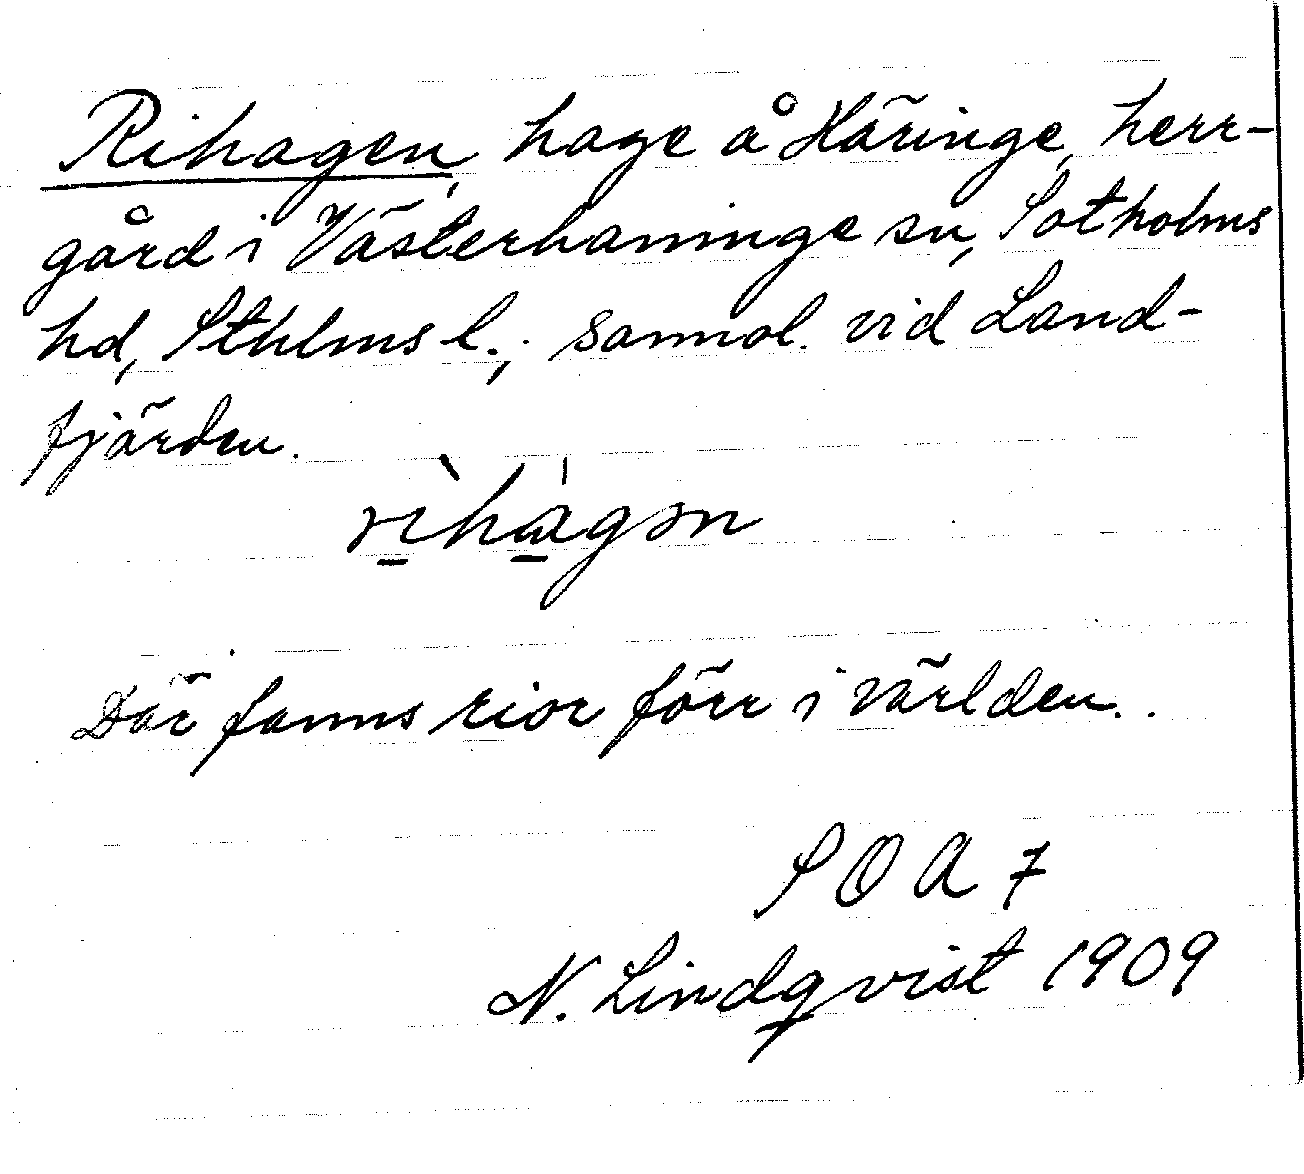 Rihagen, hage å Häringe, herr-
gård i Västerhaninge sn, Sotholms
hd, Sthlms l.; sannol. vid Land-
fjärden.
rìhágən
Där fanns rior förr i världen.
SOA 7
N. Lindqvist 1909